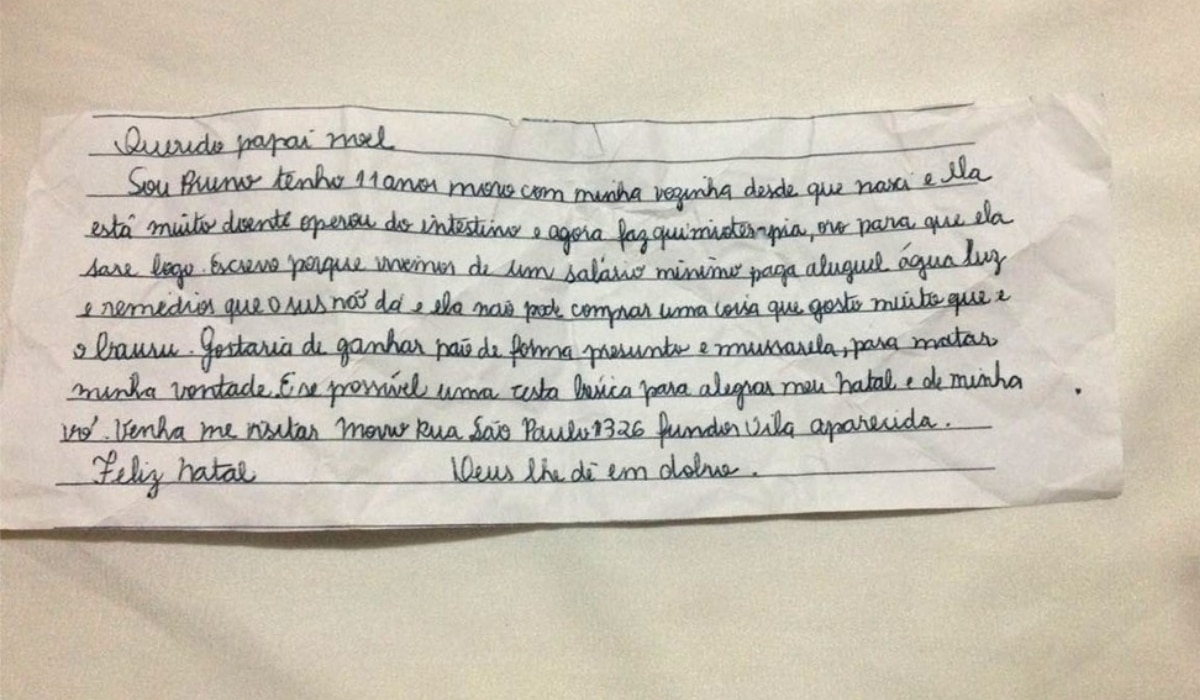 Querido papai noel
Sou Bruno tenho 11 anos moro com minha vozinha desde que nasci e Ela
está muito doente operou do intestino e agora faz quimioterapia, oro para que ela
sare logo. Escrevo porque vivemos de um salário mínimo paga aluguel água luz
e remédios que o sus não dá e ela não pode comprar uma coisa que gosto muito que e
o bauru. Gostaria de ganhar pão de forma presunto e mussarela, para matar
minha vontade. E se possível uma cesta básica para alegrar meu natal e de minha
vó. Venha me visitar Moro Rua São Paulo 1326 fundos Vila aparecida.
Feliz natal Deus lhe dê em dobro.